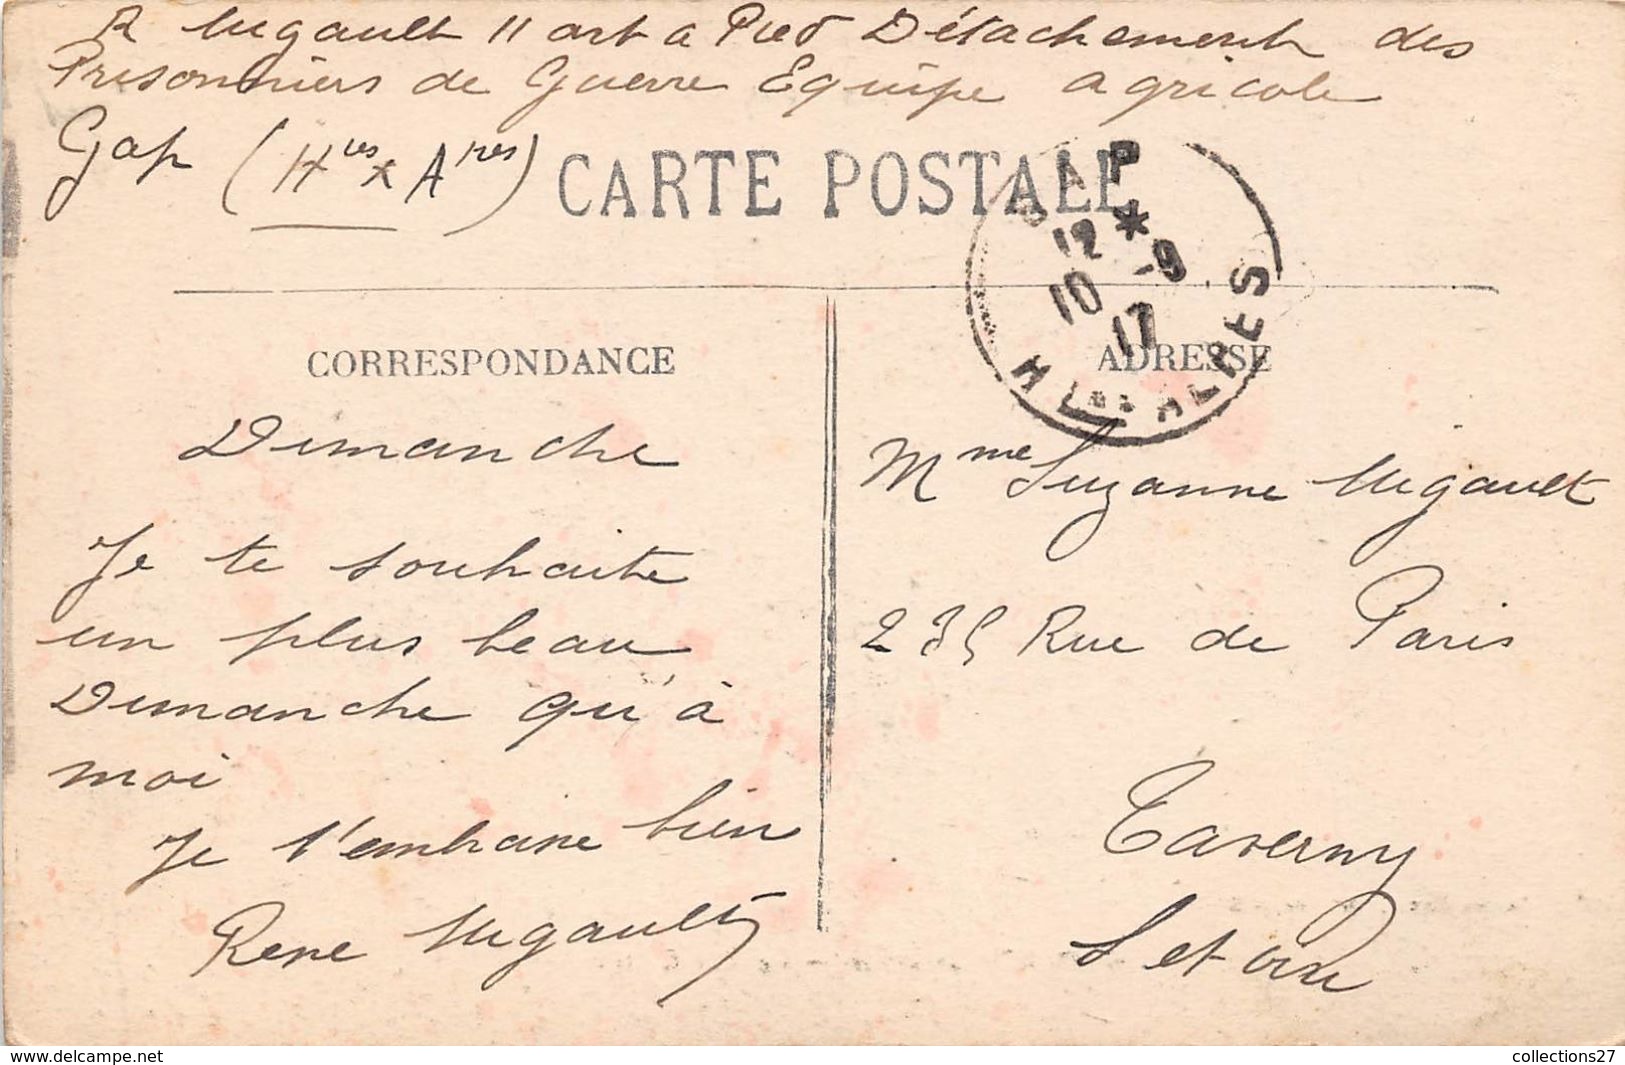 R Migault 11 art a Pied Détachement des
Prisonniers de Guerre Equipe agricole
Gap (Htes x Alpes)
CARTE POSTALE
GAP
12 * 9
10 17
HTES ALPES
CORRESPONDANCE
ADRESSE
Dimanche
Je te souhaite
un plus beau
Dimanche qu'à
moi
Je t'embrasse bien
Rene Migault
Mme Suzanne Migault
235 Rue de Paris
Taverny
S et oise
www.delcampe.net
collections27